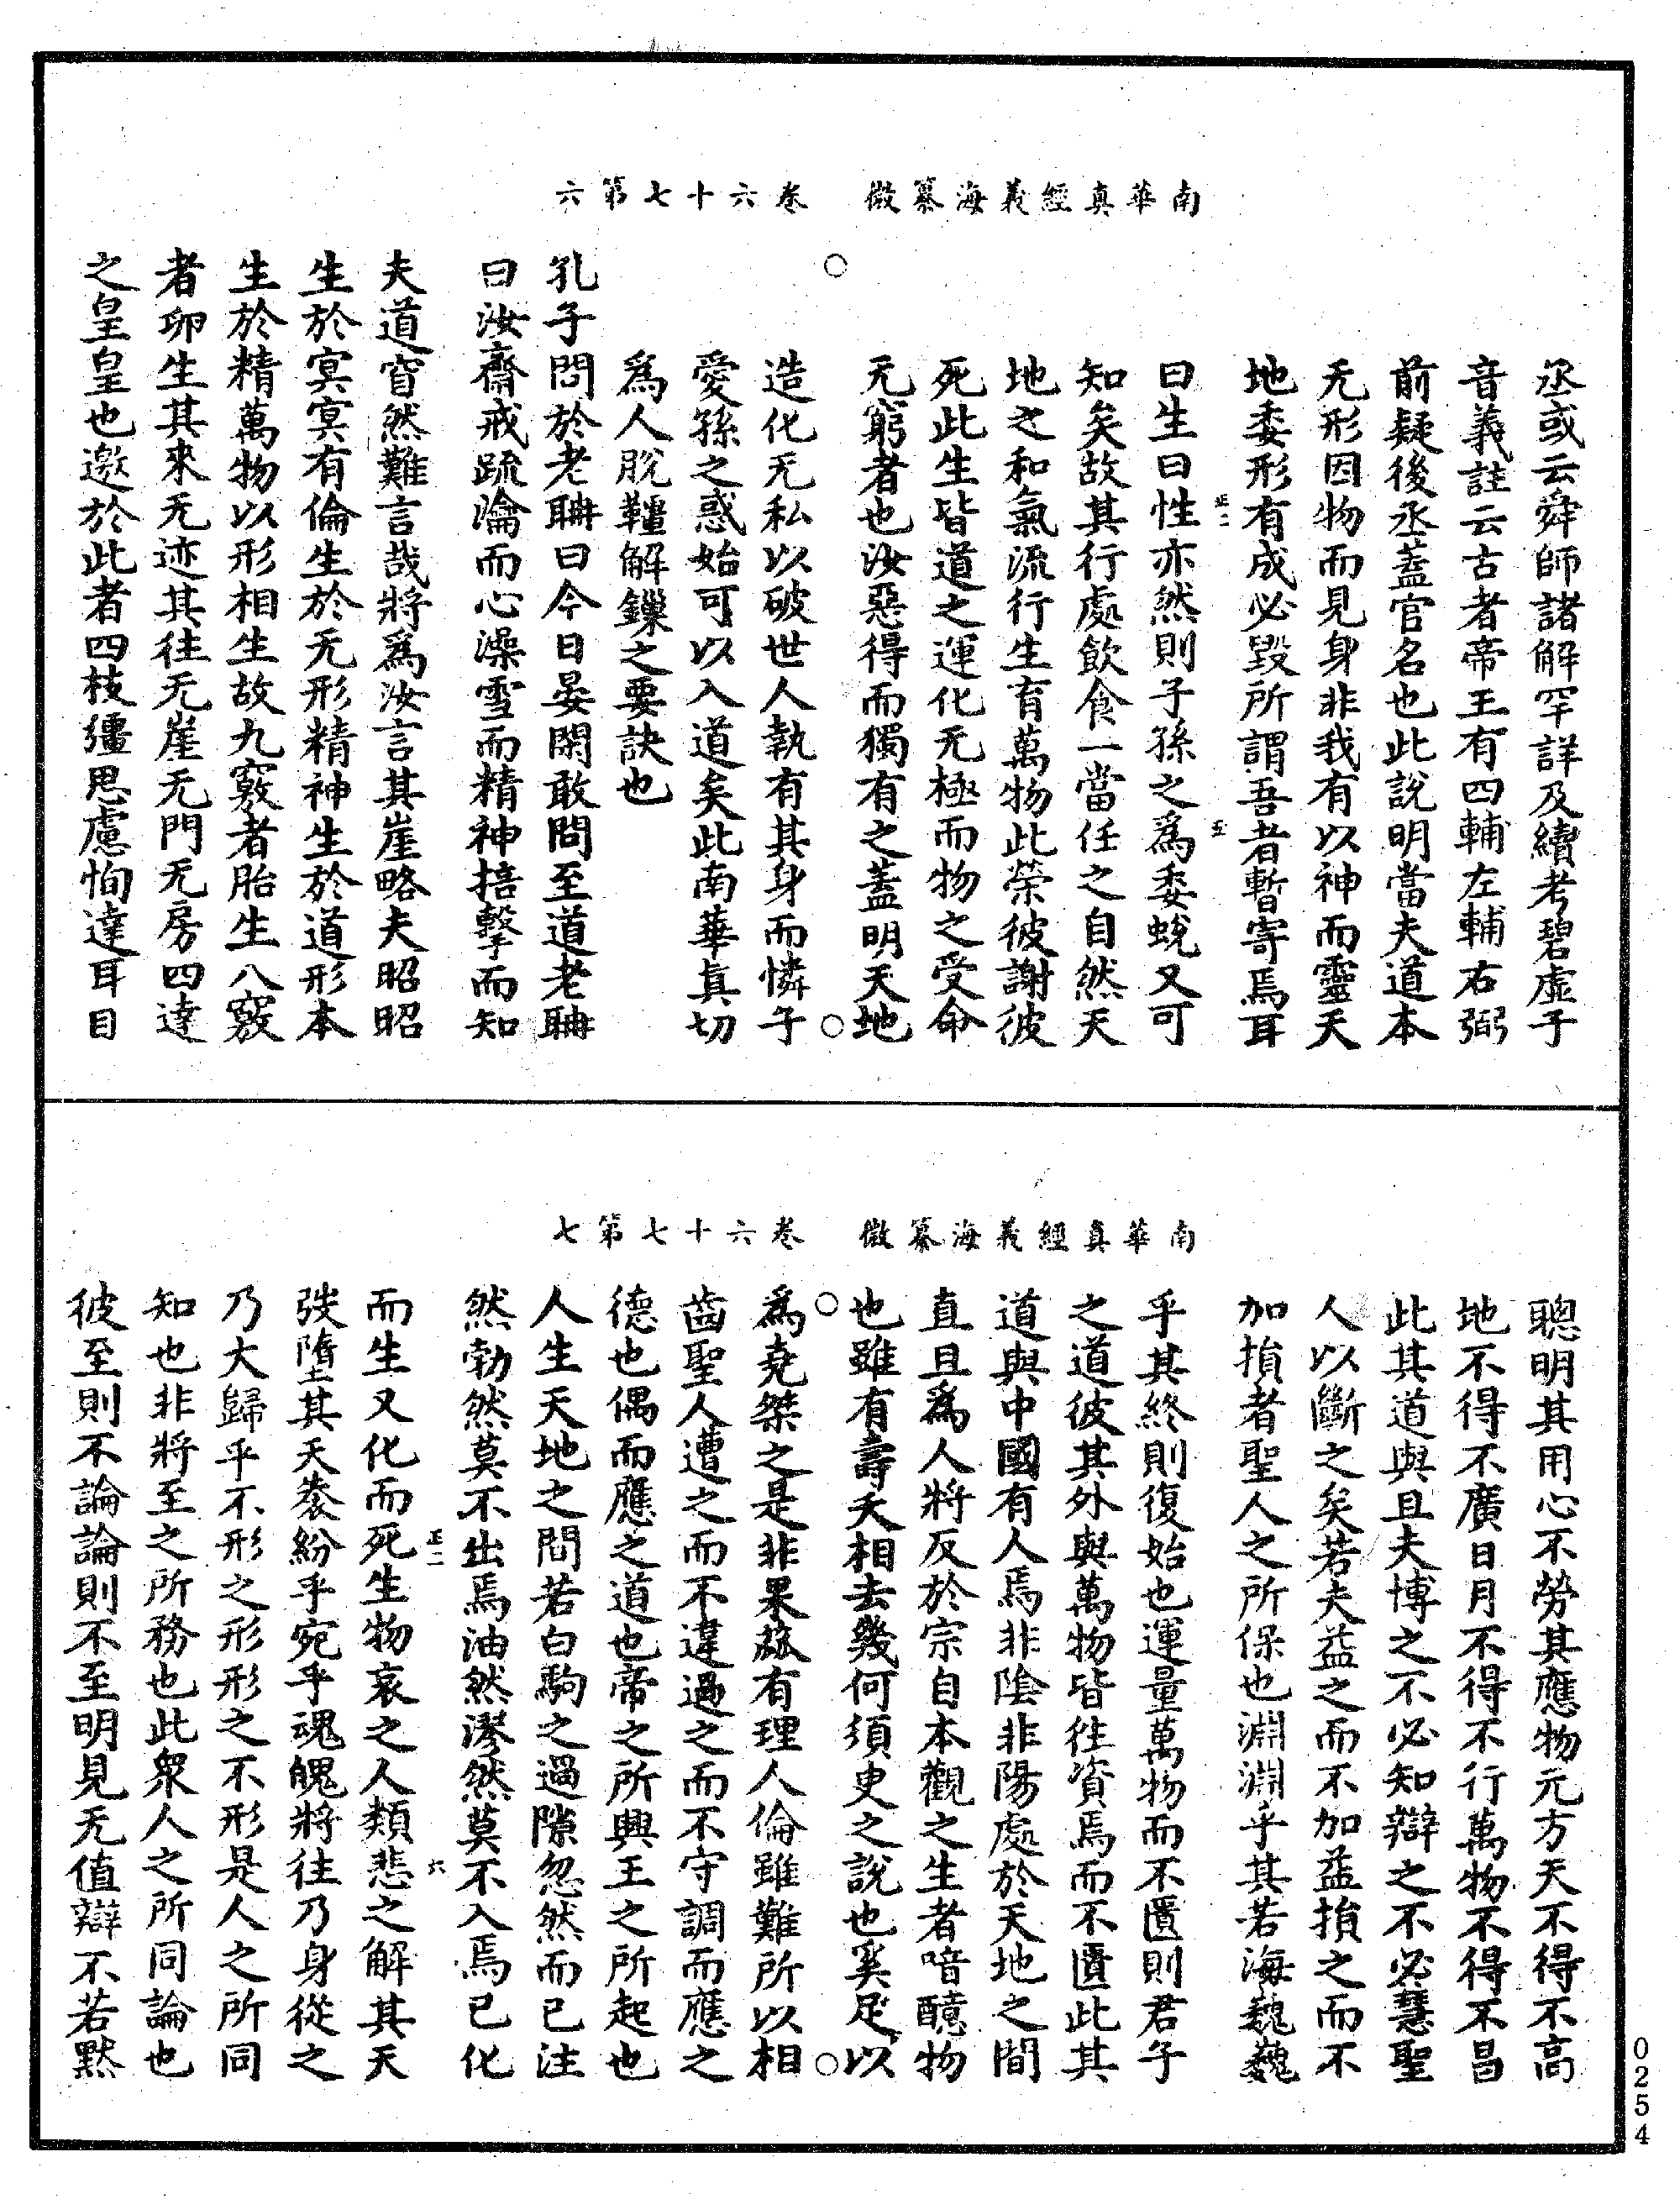 南華真經義海纂微　卷六十七第六
丞或云舜師諸解罕詳及續考碧虛子
音義註云古者帝王有四輔左輔右弼
前疑後丞蓋官名也此說明當夫道本
无形因物而見身非我有以神而靈天
地委形有成必毀所謂吾者暫寄焉耳
曰生曰性亦然則子孫之為委蛻又可
知矣故其行處飲食一當任之自然天
地之和氣流行生育萬物此榮彼謝彼
死此生皆道之運化无極而物之受命
无窮者也汝惡得而獨有之蓋明天地
造化无私以破世人執有其身而憐子
愛孫之惑始可以入道矣此南華真切
為人脫韁解鏁之要訣也
孔子問於老聃曰今日晏閑敢問至道老聃
曰汝齋戒疏瀹而心澡雪而精神掊擊而知
夫道窅然難言哉將為汝言其崖略夫昭昭
生於冥冥有倫生於无形精神生於道形本
生於精萬物以形相生故九竅者胎生八竅
者卵生其來无迹其往无崖无門无房四達
之皇皇也邀於此者四枝彊思慮恂達耳目
南華真經義海纂微　卷六十七第七
聰明其用心不勞其應物无方天不得不高
地不得不廣日月不得不行萬物不得不昌
此其道與且夫博之不必知辯之不必慧聖
人以斷之矣若夫益之而不加益損之而不
加損者聖人之所保也淵淵乎其若海魏魏
乎其終則復始也運量萬物而不匱則君子
之道彼其外與萬物皆往資焉而不匱此其
道與中國有人焉非陰非陽處於天地之間
直且為人將反於宗自本觀之生者喑醷物
也雖有壽夭相去幾何須臾之說也奚足以
為堯桀之是非果蓏有理人倫雖難所以相
齒聖人遭之而不違過之而不守調而應之
德也偶而應之道也帝之所興王之所起也
人生天地之間若白駒之過隙忽然而已注
然勃然莫不出焉油然漻然莫不入焉已化
而生又化而死生物哀之人類悲之解其天
弢墮其天袠紛乎宛乎魂魄將往乃身從之
乃大歸乎不形之形形之不形是人之所同
知也非將至之所務也此眾人之所同論也
彼至則不論論則不至明見无值辯不若默
正二　五
正二　六
0254